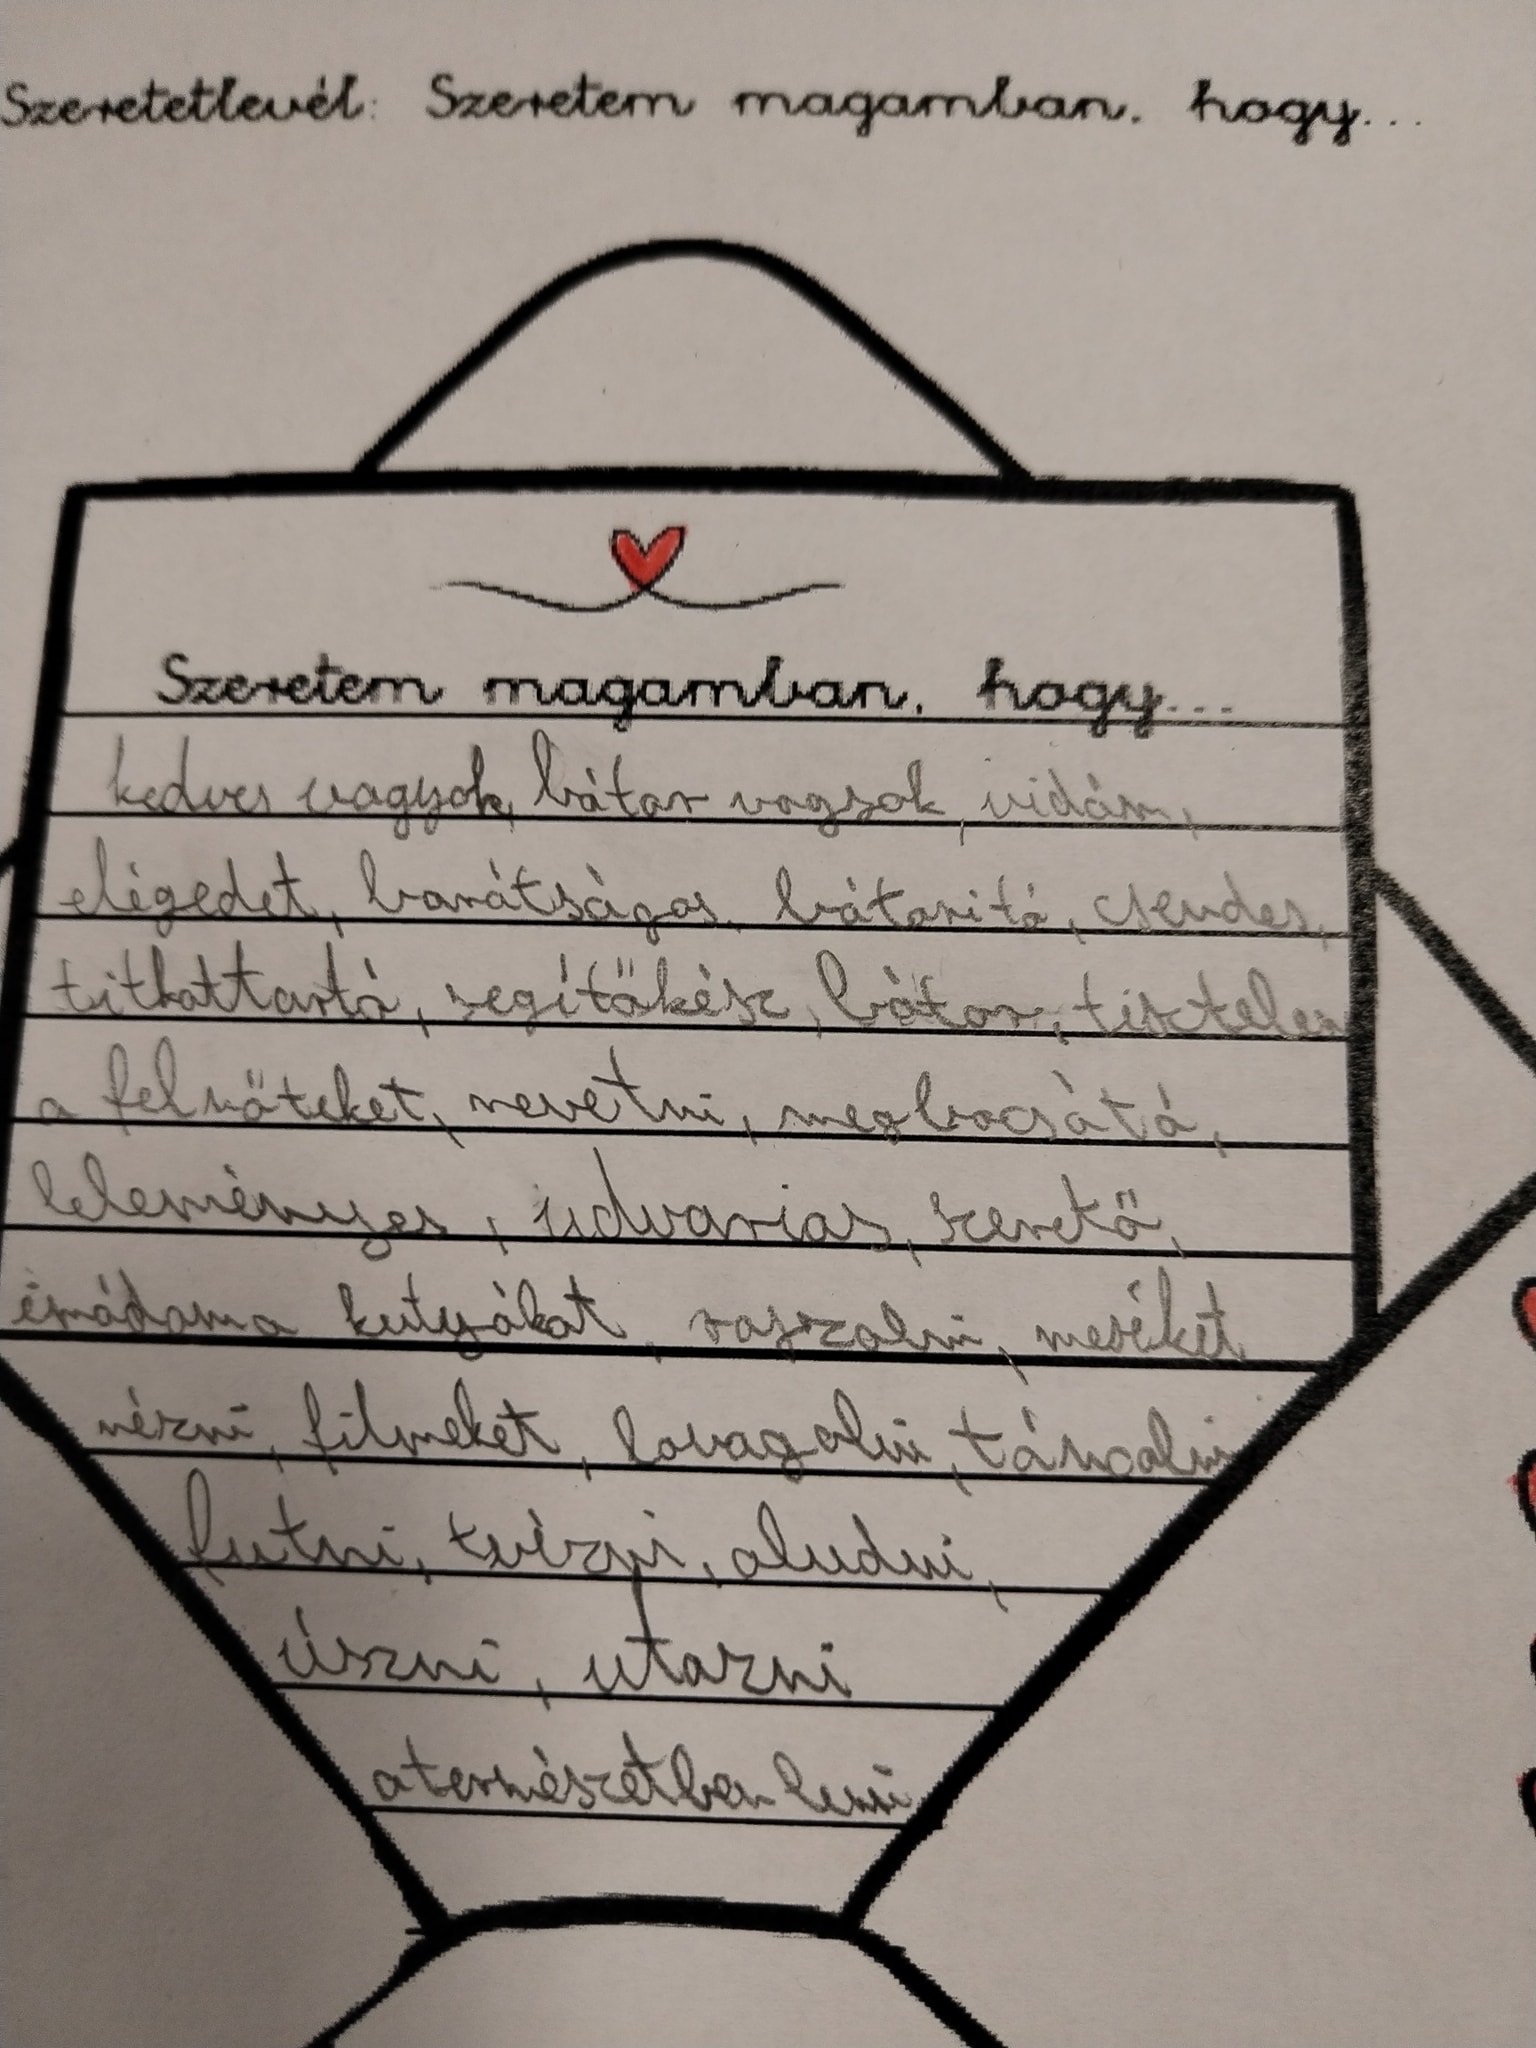 Szeretetlevél: Szeretem magamban, hogy...
Szeretem magamban, hogy...
kedves vagyok, bátor vagyok, vidám,
elégedet, barátságos, bátorító, csendes,
titkottartó, segítőkész, bátor, tisztelem
a felnőteket, nevetni, megbocsátó,
leleményes, udvarias, szerető,
imádom a kutyákat, rajzolni, meséket
nézni, filmeket, lovagolni, táncolni
futni, tvézni, aludni,
úszni, utazni
a termèszetben lenni